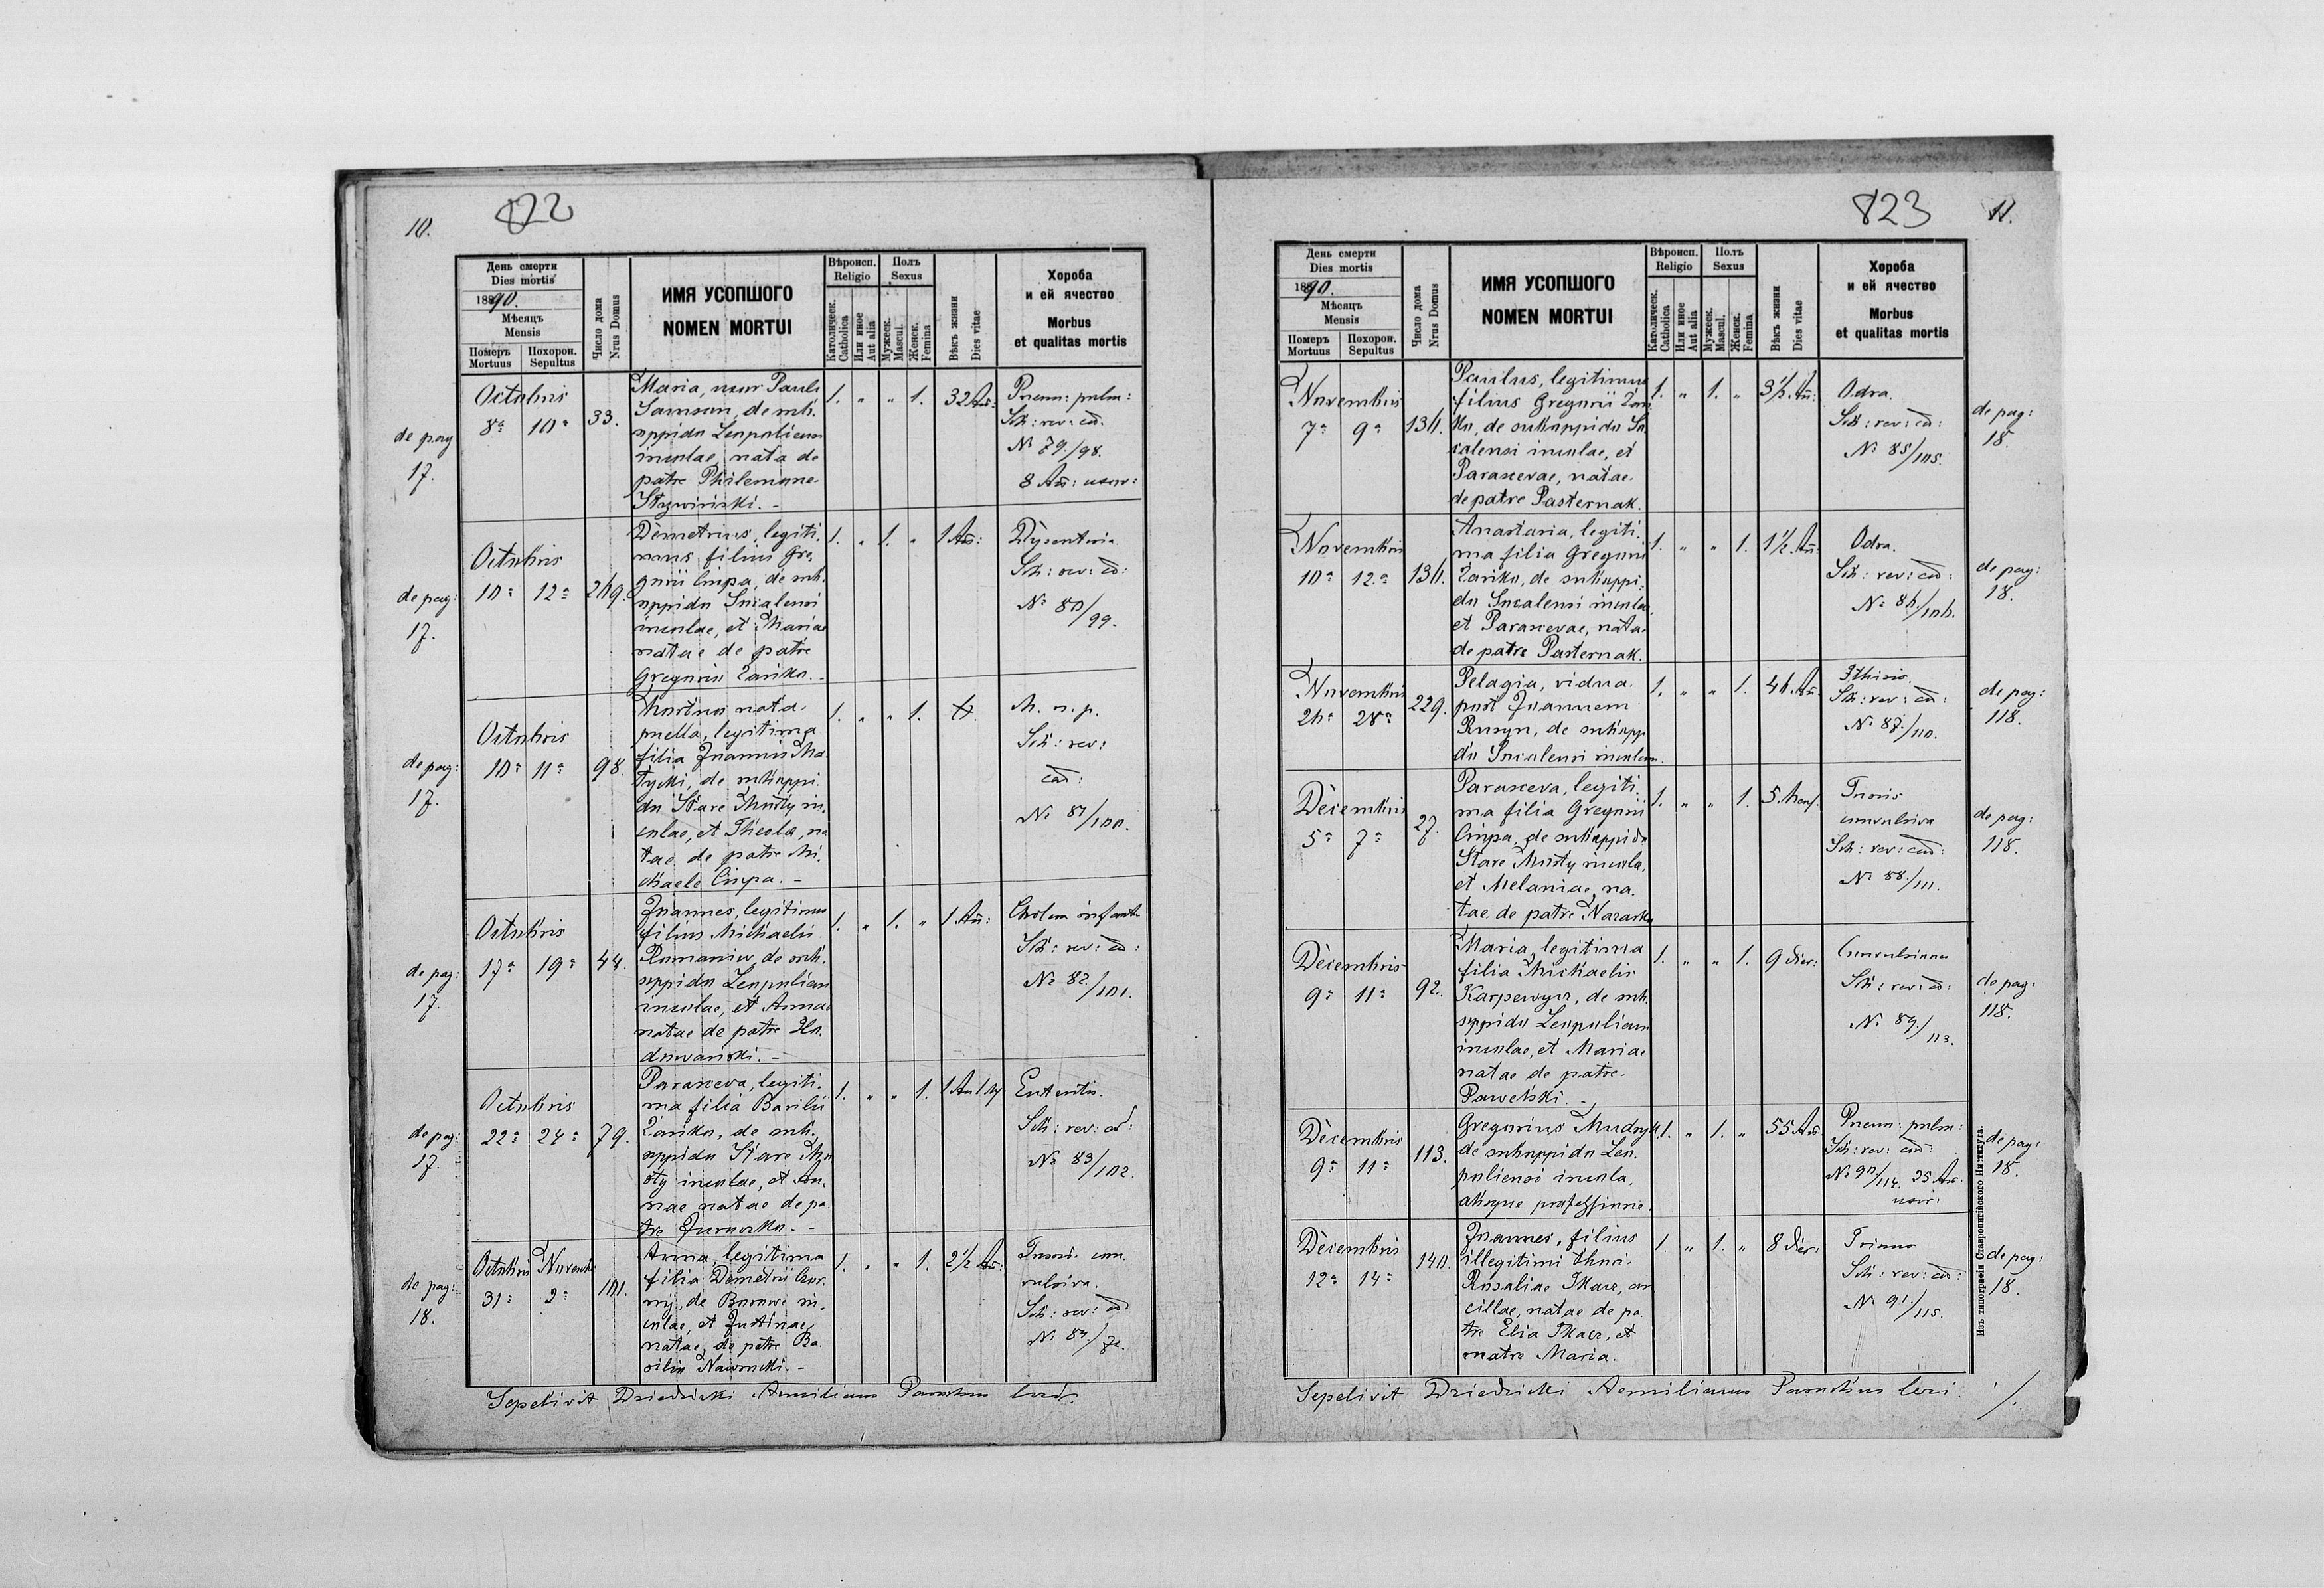 10.
822
День смерти
Dies mortis
1890.
Мѣсяцъ
Mensis
Померъ
Mortuus
Похорон.
Sepultus
Число дома
Nrus Domus
ИМЯ УСОПШОГО
NOMEN MORTUI
Вѣроисп.
Religio
Католическ.
Catholica
Или иное
Aut alia
Полъ
Sexus
Мужеск.
Mascul.
Женск.
Femina
Вѣкъ жизни
Dies vitae
Хороба
и ей ячество
Morbus
et qualitas mortis
de pag
17.
Octobris
8a 10a
33.
Maria, uxor Pauli
Samson, de sub.
oppido Leopolien
incolae, nata de
patre Philemone
1. " " 1.
32 An:
Pneum: pulm:
Sch: rev: cad.
No 79./98.
8 An: uxor:
de pag:
17.
Octobris
10a 12a
249.
Demetrius, legiti.
mus filius Gre,
gorii Ciupa, de sub.
oppido Socalensi
incolae, et Mariae
natae de patre
Gregorio Zariko. -
1. " 1. "
1 An:
Dysenteria
Sch: rev: cad:
No 80/99.
de pag:
17.
Octobris
10a 11a
98.
Mortuo nata
puella, legitima
filia Joannis Ma
tycki, de suboppi.
do Stare Mosty in,
colae, et Thecla, na
tae de patre Mi.
chaele Ciupa. -
1. " " 1.
M. n. p.
Sch: rev:
cad:
No 81/100.
de pag:
17.
Octobris
17a 19a
48.
Joannes, legitimus
filius Michaelis
Romaniw, de sub.
oppido Leopolien
incolae, et Annae
natae de patre Ho.
dowański. -
1. " 1. "
1 An:
Cholera infant
Sch: rev: cad:
No 82./101.
de pag:
17.
Octobris
22a 24a
79.
Parasceva, legiti.
ma filia Basilii
Zariko, de sub.
oppido Stare Mo
sty incolae, et An.
nae natae de pa
tre
1. " " 1.
Sch: rev: cad:
No 83/102.
de pag:
18.
Octobris Novemb:
31a 2a
101.
Anna, legitima
filia Demetrii
de in.
colae, et Justinae,
natae, de patre Ba.
silio Nawrocki. -
1. " " 1.
2 1/2 An:
Tussis con
vulsiva.
Sch: rev: cad:
No 84./
Sepelivit Dziedzicki Aemilianus Parochus loci.
823
11.
День смерти
Dies mortis
1890.
Мѣсяцъ
Mensis
Померъ
Mortuus
Похорон.
Sepultus
Число дома
Nrus Domus
ИМЯ УСОПШОГО
NOMEN MORTUI
Вѣроисп.
Religio
Католическ.
Catholica
Или иное
Aut alia
Полъ
Sexus
Мужеск.
Mascul.
Женск.
Femina
Вѣкъ жизни
Dies vitae
Хороба
и ей ячество
Morbus
et qualitas mortis
Novembris
7a 9a
136.
Paulus, legitimus
filius Gregorii Zari
ko, de suboppido So.
calensi incolae, et
Parascevae, natae
de patre Pasternak.
1. " 1. "
3 1/2 An:
Odra.
Sch: rev: cad:
No 85/105.
de pag:
18.
Novembris
10a 12a
136.
Anastasia, legiti.
ma filia Gregorii
Zariko, de suboppi-
do Socalensi incolae,
et Parascevae, nata
de patre Pasternak.
1. " " 1.
1 1/2 An:
Odra.
Sch: rev: cad:
No 86/106.
de pag:
18.
Novembris
26a 28a
229.
Pelagia, vidua
post Joannem
Rusyn, de subopp
do Socalensi incolam.
1. " " 1.
46 An:
Sch: rev: cad:
No 87./110.
de pag:
118.
Decembris
5a 7a
27.
Parasceva, legiti.
ma filia Gregorii
Ciupa, de suboppido
Stare Mosty incola,
et Melaniae, na.
tae de patre Nazarko
1. " " 1.
5 Mens.
Tussis
convulsiva
Sch: rev: cad:
No 88./111.
de pag:
118.
Decembris
9a 11a
92.
Maria, legitima
filia Michaelis
Karpewycz, de sub.
oppido Leopolien
incolae, et Mariae
natae de patre
Pawelski. -
1. " " 1.
9 dier:
Convulsiones
Sch: rev: cad:
No 89./113.
de pag:
118.
Decembris
9a 11a
113.
Gregorius Mudryk,
de suboppido Leo.
poliensi incola,
absque professione.
1. " 1. "
55 An
Pneum: pulm:
Sch: rev: cad:
No 90/114. 25 An.
uxor:
de pag:
18.
Decembris
12a 14a
140.
Joannes, filius
illegitimi thori
Rosaliae Tkacz, an
cillae, natae de pa.
tre Elia Tkacz, et
matre Maria.
1. " 1. "
8 dier:
Trismus
Sch: rev: cad:
No 91/115.
de pag:
18.
Sepelivit Dziedzicki Aemilianus Parochus loci.
Изъ типографіи Ставропигійского Института.